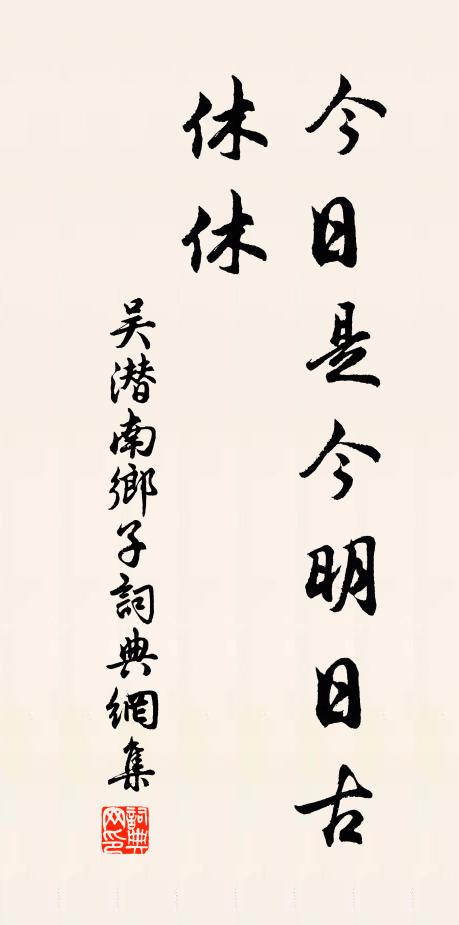 今日是今明日古
休休
吴潜南鄉子詞典網集
詞典
网印